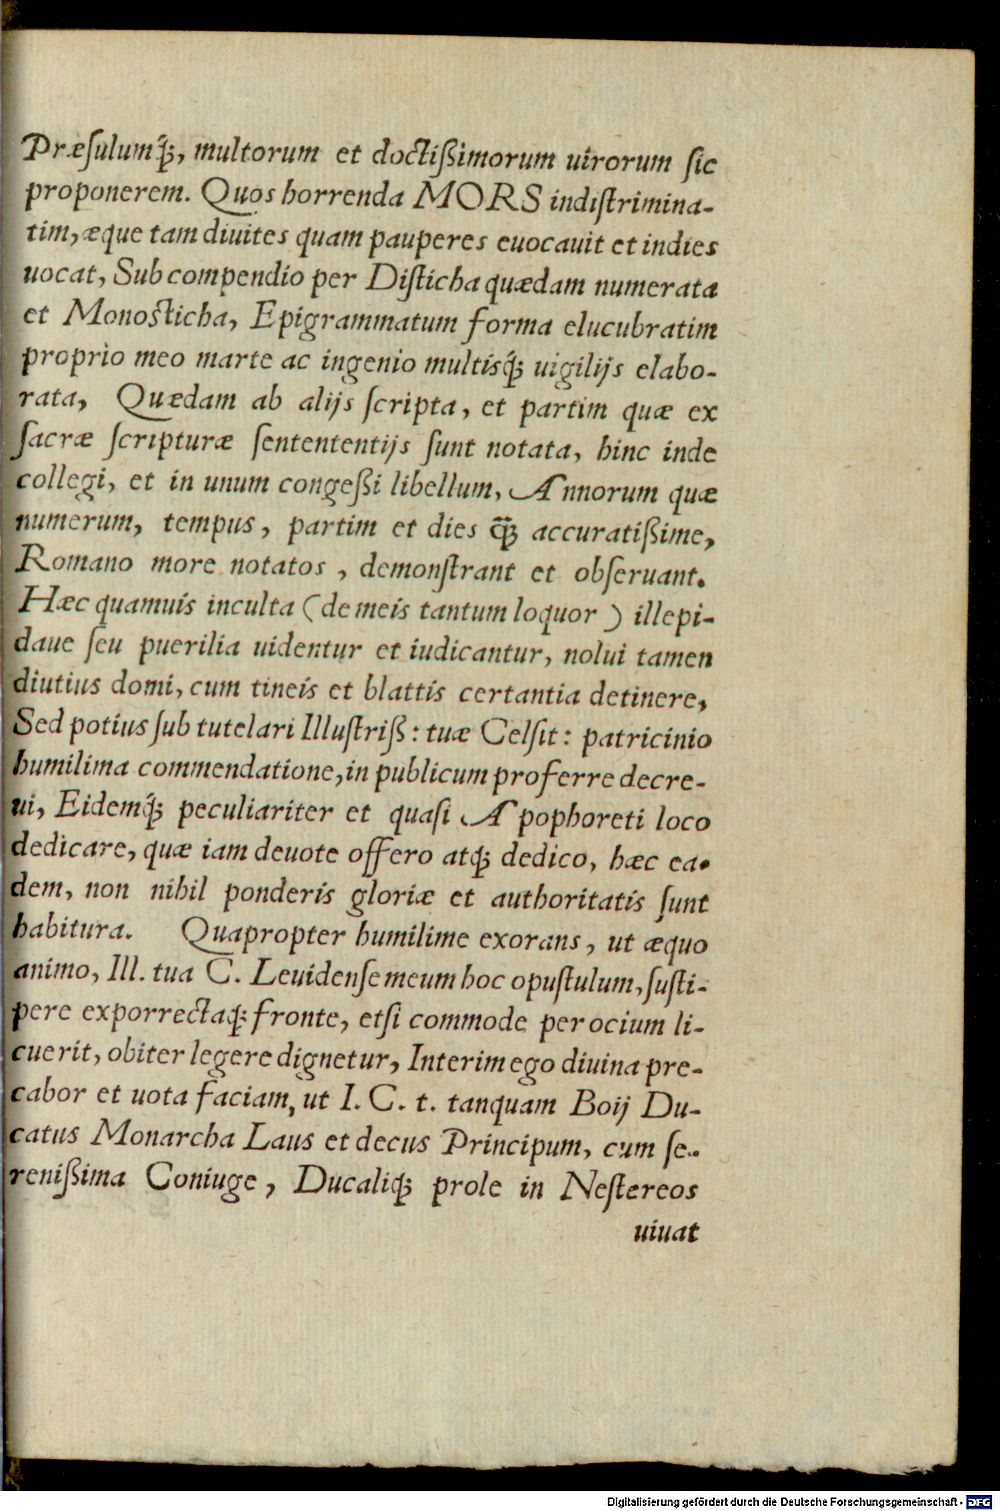 Præſulumq́;, multorum et doctiſsimorum uirorum ſic
proponerem. Quos horrenda MORS indiſtrimina-
tim, æque tam diuites quam pauperes euocauit et indies
uocat, Sub compendio per Diſticha quædam numerata
et Monoſticha, Epigrammatum forma elucubratim
proprio meo marte ac ingenio multisq́; uigilijs elabo-
rata, Quædam ab alijs ſcripta, et partim quæ ex
ſacræ ſcripturæ ſentententijs ſunt notata, hinc inde
collegi, et in unum congeſsi libellum, Annorum quæ
numerum, tempus, partim et dies q̈; accuratiſsime,
Romano more notatos, demonſtrant et obſeruant.
Hæc quamuis inculta (de meis tantum loquor) illepi-
daue ſeu puerilia uidentur et iudicantur, nolui tamen
diutius domi, cum tineis et blattis certantia detinere,
Sed potius ſub tutelari Illuſtriſs: tuæ Celſit: patricinio
humilima commendatione, in publicum proferre decre-
ui, Eidemq́; peculiariter et quaſi Apophoreti loco
dedicare, quæ iam deuote offero atq́; dedico, hæc ea-
dem, non nihil ponderis gloriæ et authoritatis ſunt
habitura. Quapropter humilime exorans, ut æquo
animo, Ill. tua C. Leuidenſe meum hoc opuſtulum, ſuſti-
pere exporrectaq́; fronte, etſi commode per ocium li-
cuerit, obiter legere dignetur, Interim ego diuina pre-
cabor et uota faciam, ut I. C. t. tanquam Boij Du-
catus Monarcha Laus et decus Principum, cum ſe-
reniſsima Coniuge, Ducaliq́; prole in Neſtereos
uiuat
Digitalisierung gefördert durch die Deutsche Forschungsgemeinschaft - DFG